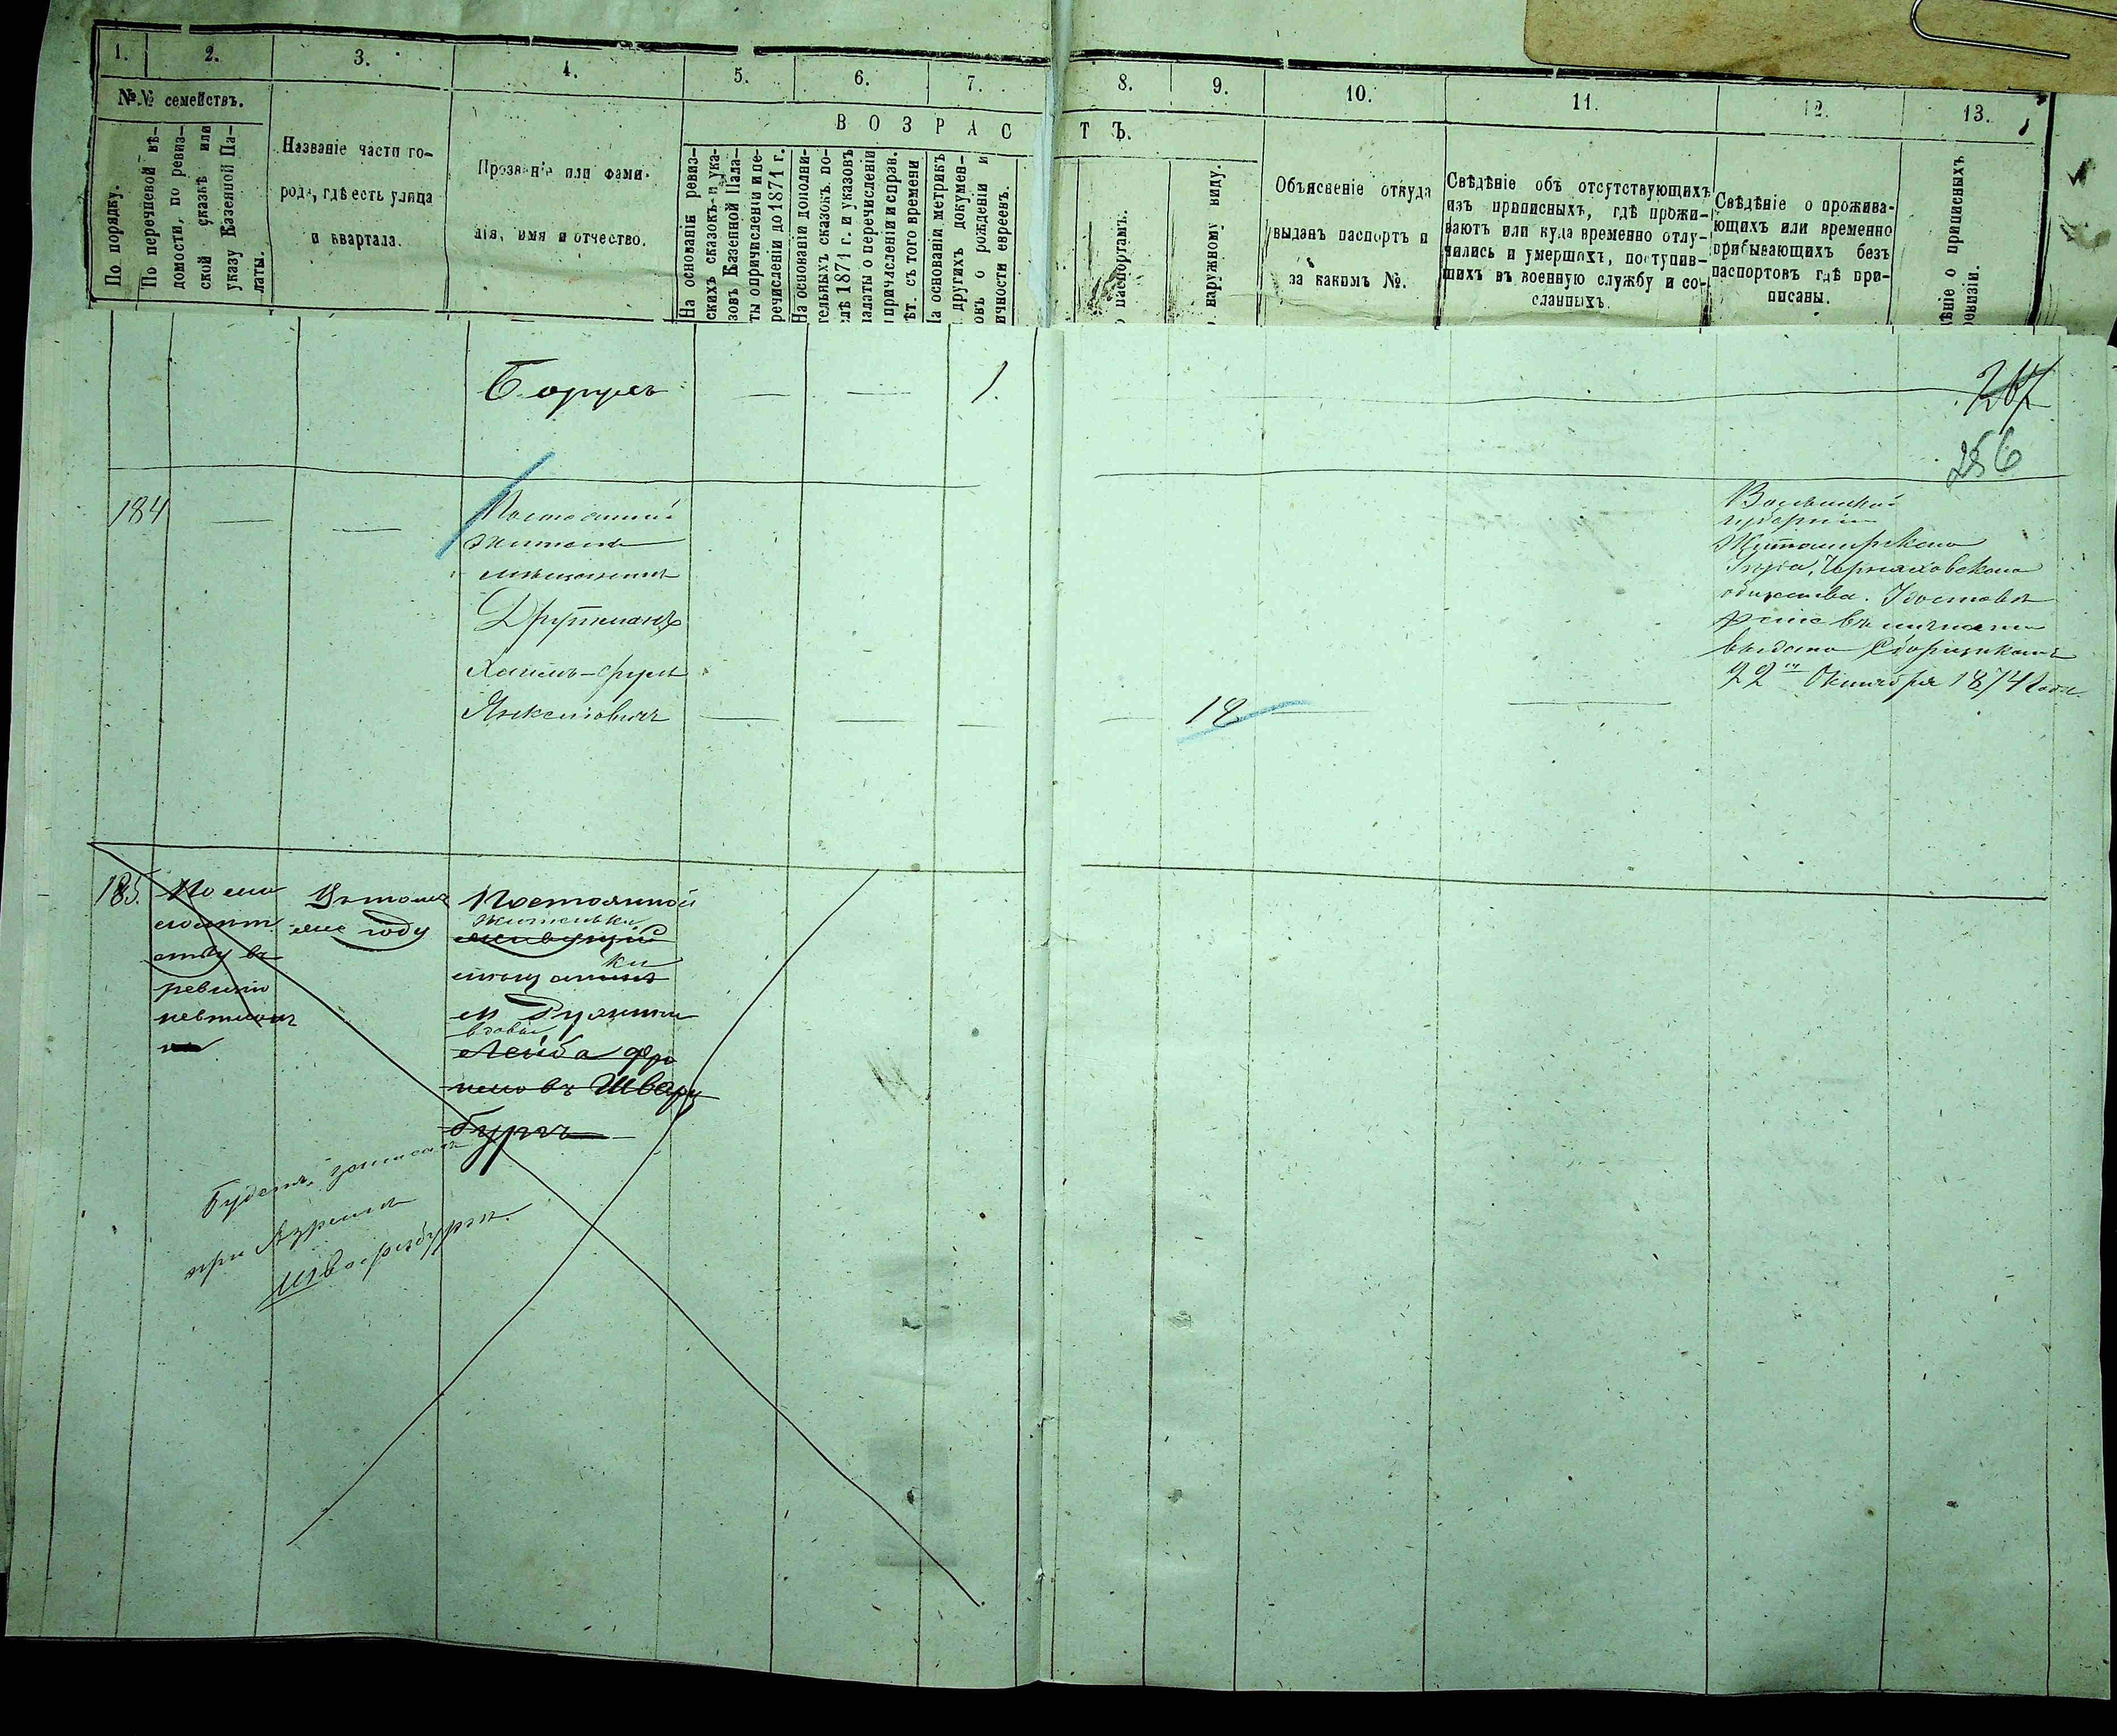 1.
2.
3.
4.
5.
6.
7.
8.
9.
10.
11.
12.
13.
№№ семействъ.
По порядку.
По перечневой вѣ-
домости, по ревиз-
ской сказкѣ или
указу Казенной Па-
латы.
Названіе части го-
рода, гдѣ есть улица
и квартала.
Прозваніе или фами-
лія, имя и отчество.
ВОЗРАС
ТЪ.
На основаніи ревиз-
скихъ сказокъ и ука-
зовъ Казенной Пала-
ты о причисленіи и пе-
речисленіи до 1871 г.
На основаніи дополни-
тельныхъ сказокъ по-
слѣ 1871 г. и указовъ
палаты о перечисленіи
и причисленіи и справ.
лѣт. съ того времени
На основаніи метрикъ
и другихъ докумен-
овъ о рожденіи и
ичности евреевъ.
о паспортамъ.
о наружному виду.
Объясненіе откуда
выданъ паспортъ и
за какимъ №.
Свѣдѣніе объ отсутствующихъ
изъ приписныхъ, гдѣ прожи-
ваютъ или куда временно отлу-
чились и умершихъ, поступив-
шихъ въ военную службу и со-
сланныхъ.
Свѣдѣніе о прожива-
ющихъ или временно
прибывающихъ безъ
паспортовъ гдѣ при-
писаны.
ѣніе о приписныхъ
ревизіи.
Борухъ — — 1.
267
256
184 — —
Постоянный
житель
мѣщанинъ
Друтманъ
Хаимъ-Сруль
Янкелiовичъ — — — — 18 — —
Волынской
губерніи
Житомирскаго
Уѣзда, Черняховскаго
общества. Удостовѣ
реніе въ личности
выдано Сборщикомъ
22го Октября 1874 года
185.
По ма
лолѣт
ству въ
ревизію
невписан
Въ томъ
же году
Постоянной
жительки
живущій
ки
мѣщанинъ
м. Ружина
вдовы
Лейба Фро
имовъ Шварц
бургъ
Будетъ записанъ
при Азрiилѣ
Шварцбургѣ.